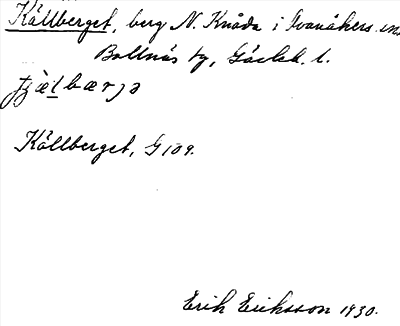 Källberget, berg N. Knåda i Svanåkers
Bollnäs sg, Gävleb. l.
Källberget, G 109.
Erik Eriksson 1930.